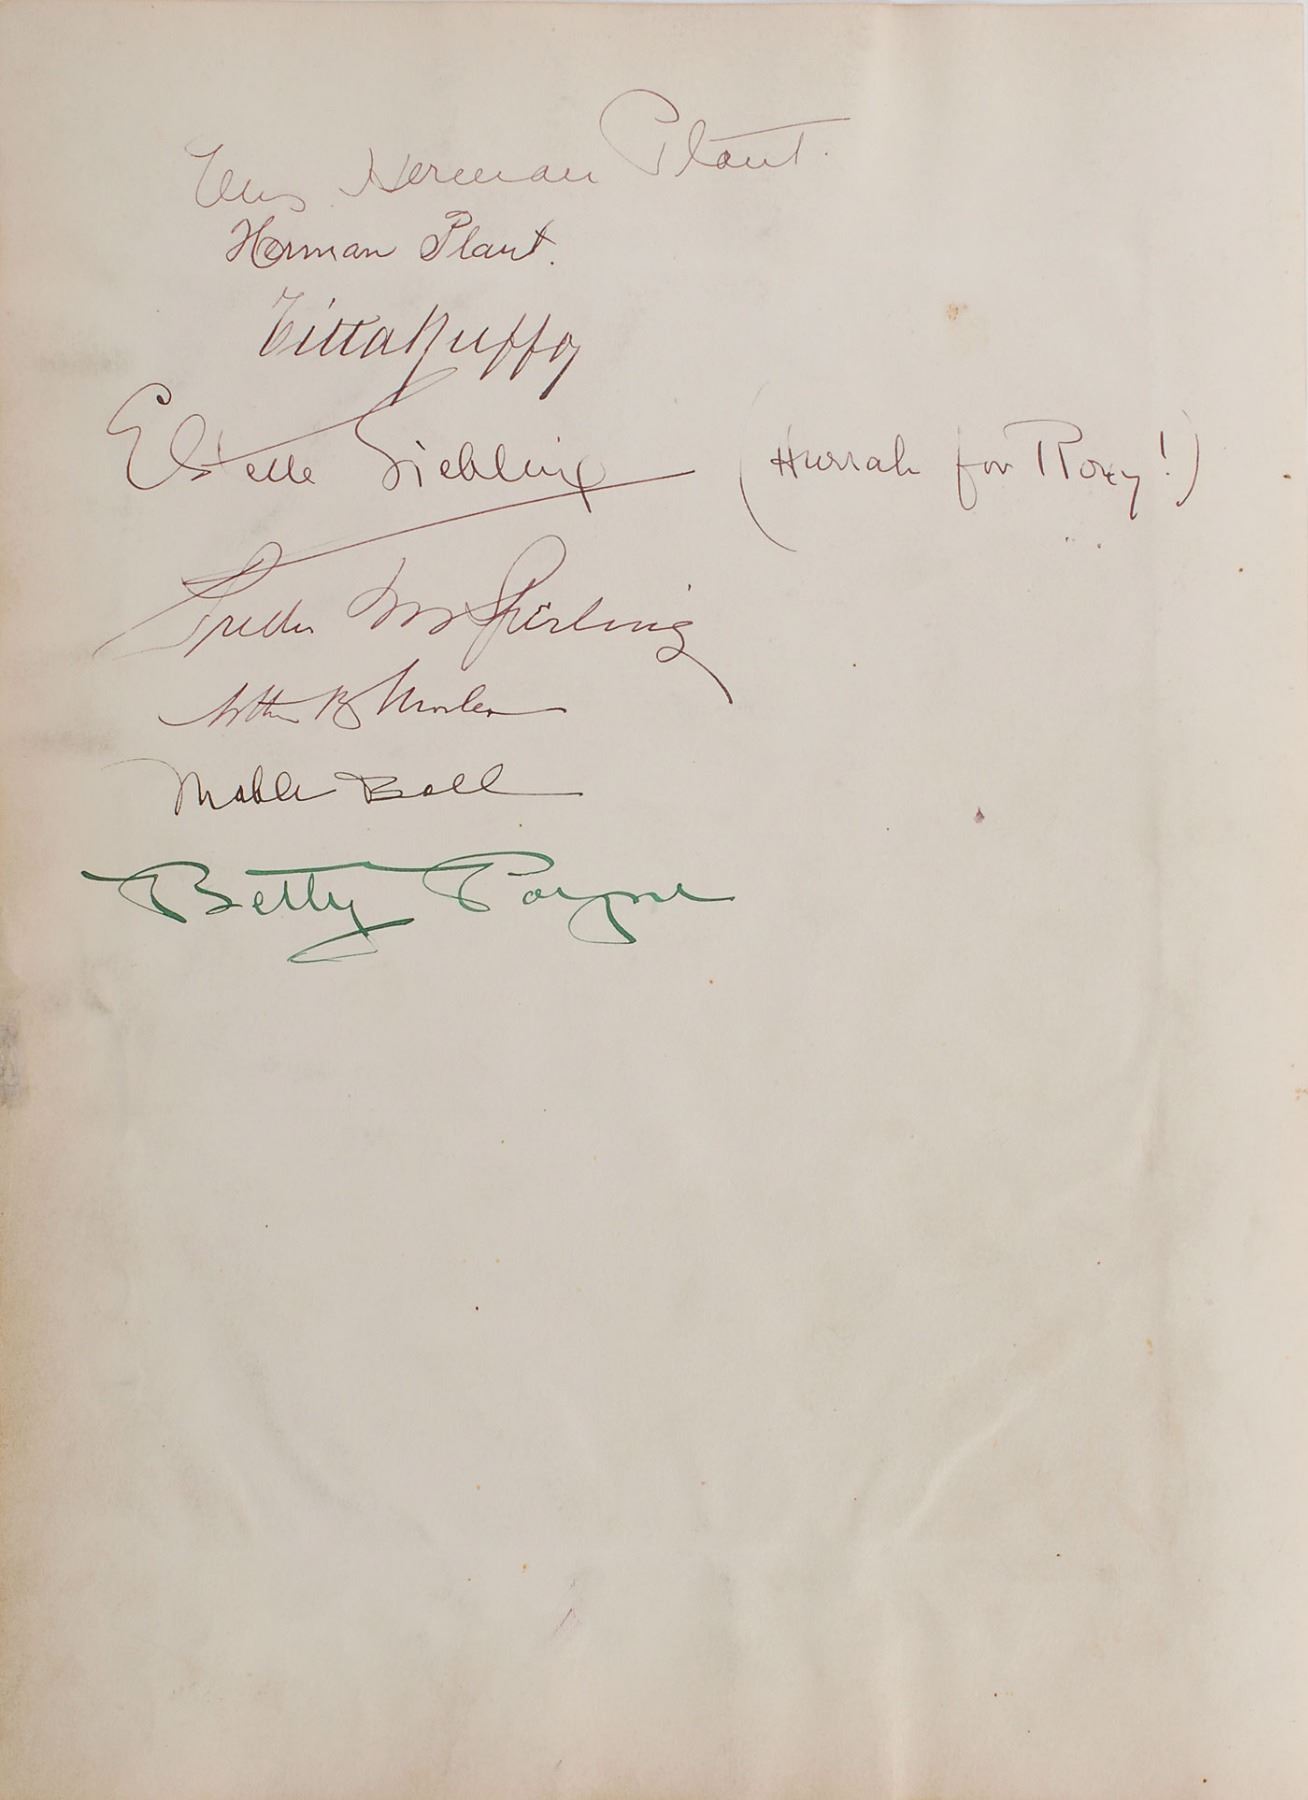 Mrs. Herman Plant.
Herman Plant.
Titta Ruffo
Estelle Liebling (Hurrah for Roxy!)
Sterling
Arthur B
Mable Boll
Betty Payne